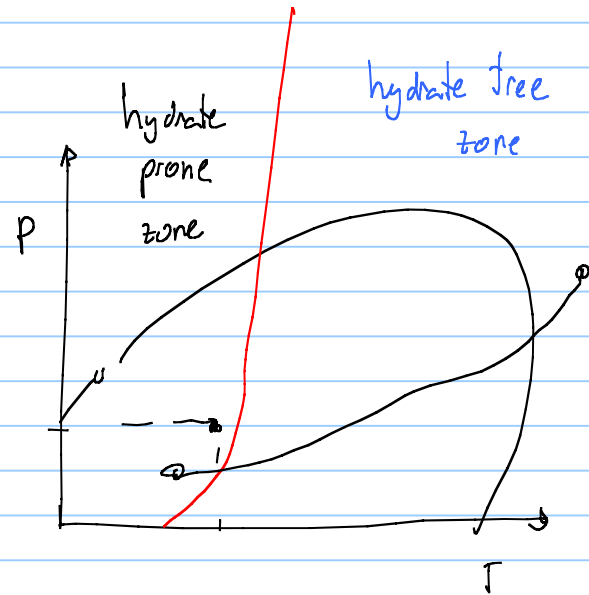 hydrate
prone
zone
hydrate free
zone
P
T